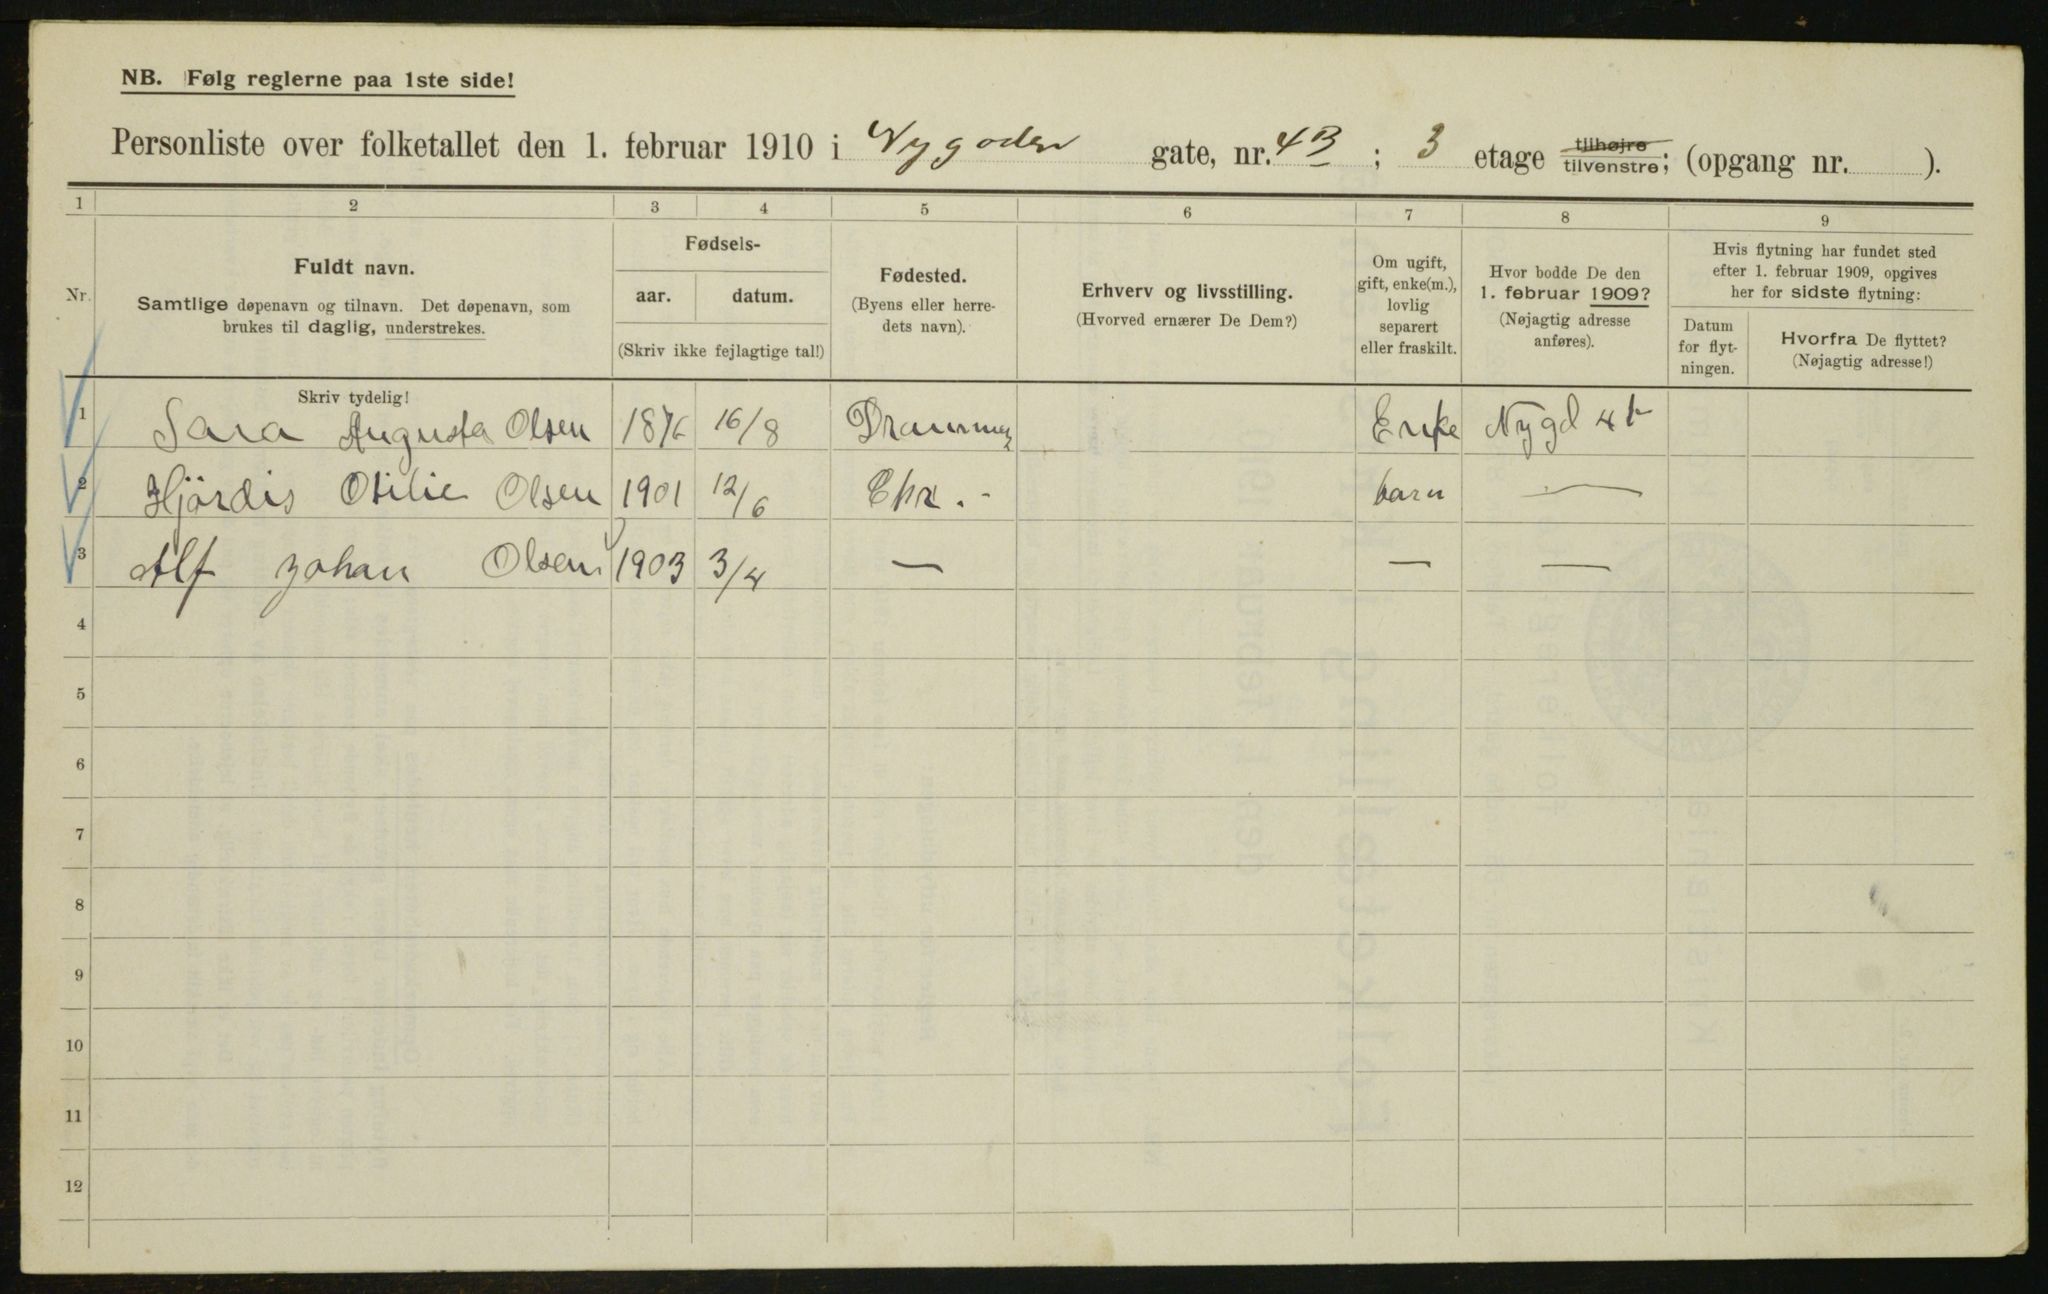 NB. Følg reglerne paa 1ste side!
Personliste over folketallet den 1. februar 1910 i Nygaden gate, nr. 4B ; 3 etage tilhøjre tilvenstre; (opgang nr. ).
1 2 3 4 5 6 7 8 9
Nr.
Fuldt navn.
Samtlige døpenavn og tilnavn. Det døpenavn, som
brukes til daglig, understrekes.
Fødsels-
aar. datum.
(Skriv ikke fejlagtige tal!)
Fødested.
(Byens eller herre-
dets navn).
Erhverv og livsstilling.
(Hvorved ernærer De Dem?)
Om ugift,
gift, enke(m.),
lovlig
separert
eller fraskilt.
Hvor bodde De den
1. februar 1909?
(Nøjagtig adresse
anføres).
Hvis flytning har fundet sted
efter 1. februar 1909, opgives
her for sidste flytning:
Datum
for flyt-
ningen.
Hvorfra De flyttet?
(Nøjagtig adresse!)
Skriv tydelig!
1 Sara Augusta Olsen 1876 16/8 Drammen Enke Nygd
2 Hjördis Otilie Olsen 1901 12/6 Chr. - barn —
3 Alf Johan Olsen 1903 3/4 — — —
4
5
6
7
8
9
10
11
12